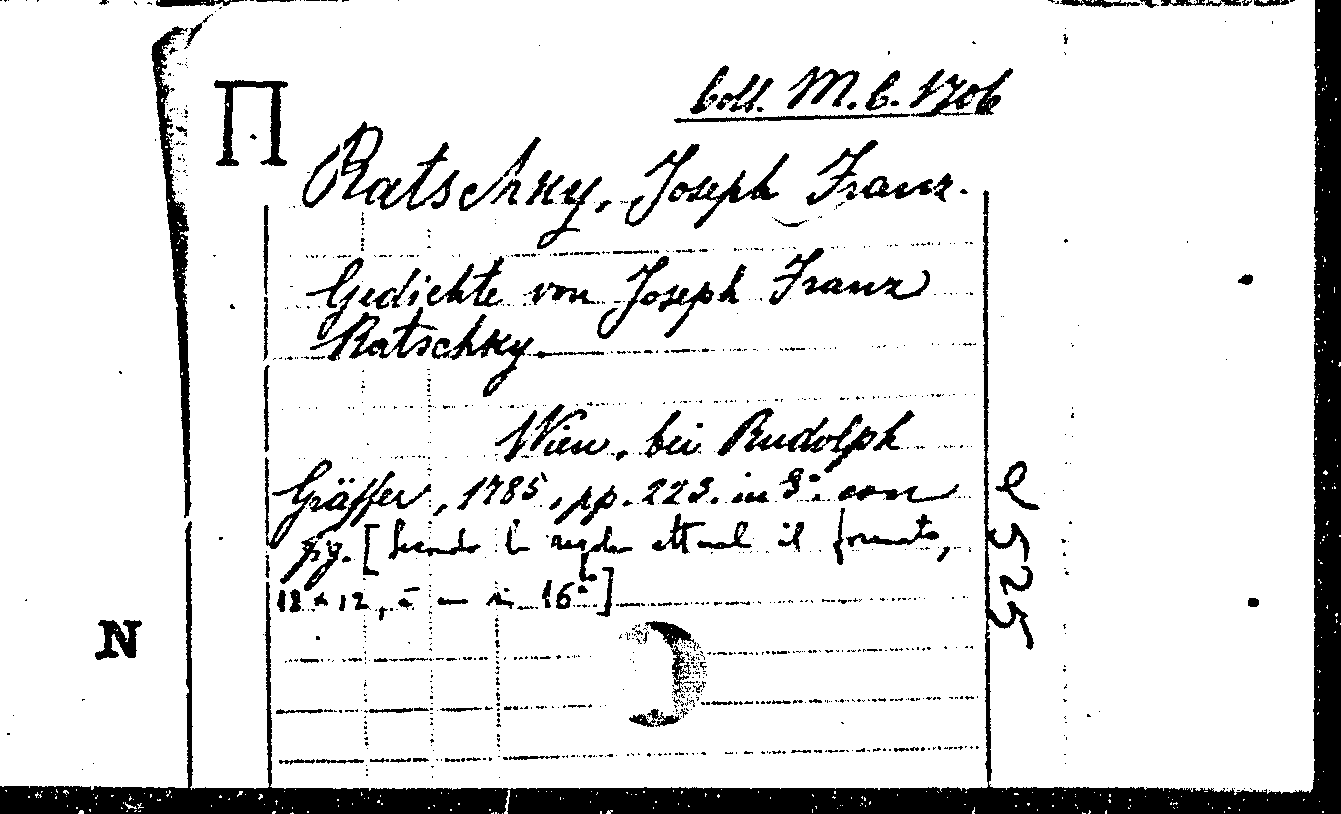 Π
Coll. M. C. 1706
Ratschky, Joseph Franz.
Gedichte von Joseph Franz
Ratschky.
Wien, bei Rudolph
Gräffer, 1785, pp. 223. in 8°. con
fig. [Secondo la regola attual il formato,
18 x 12, è un in 16°]
e 525
N